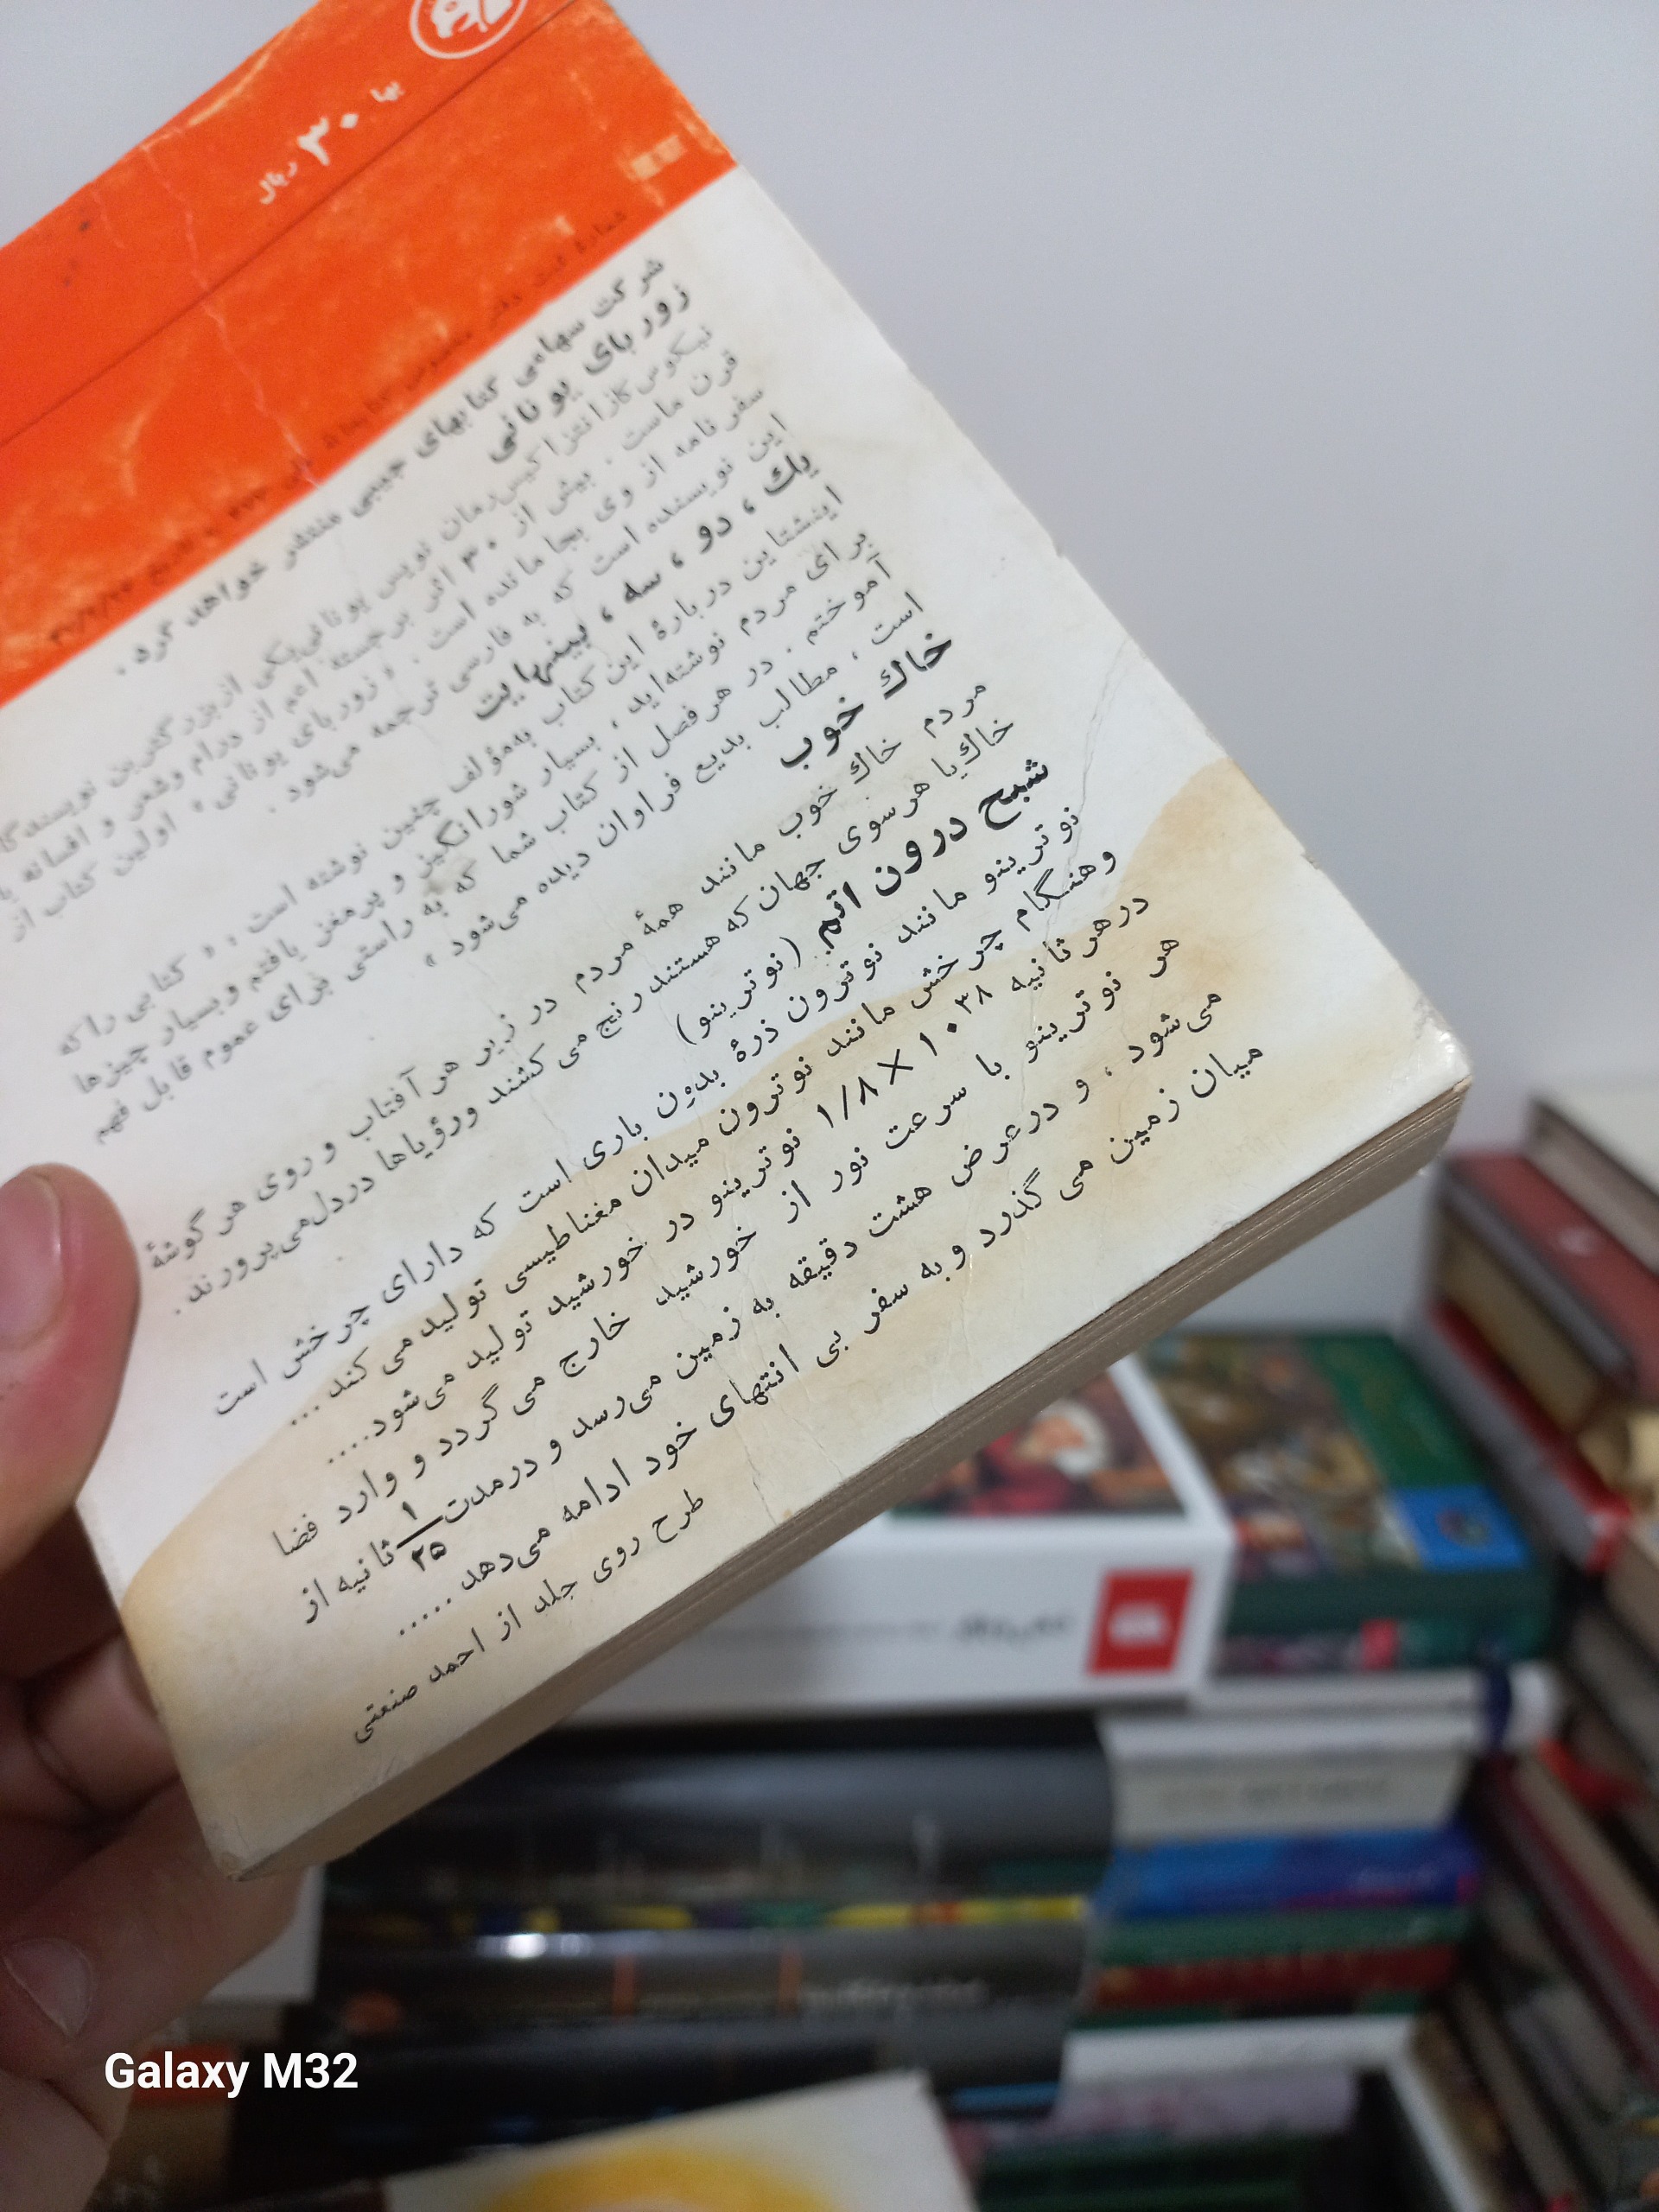 بها ۳۰ ریال
شرکت سهامی کتابهای جیبی منتشر خواهد کرد.
زوربای یونانی
نیکوس کازانتزاکیس رمان نویس یونانی یکی از بزرگترین نویسندگان
قرن ماست. بیش از ۳۰ اثر برجسته اعم از درام و شعر و افسانه یا
سفرنامه از وی بجا مانده است. «زوربای یونانی» اولین کتاب از
این نویسنده است که به فارسی ترجمه می‌شود.
یك، دو، سه، بینهایت
اینشتاین دربارهٔ این کتاب به‌مؤلف چنین نوشته است: «کتابی را که
برای مردم نوشته‌اید، بسیار شورانگیز و پرمغز یافتم و بسیار چیزها
آموختم. در هر فصل از کتاب شما که به راستی برای عموم قابل فهم
است، مطالب بدیع فراوان دیده می‌شود»
خاك خوب
مردم خاك خوب مانند همهٔ مردم در زیر هر آفتاب و روی هر گوشهٔ
خاك یا هرسوی جهان که هستند رنج می کشند ورؤیاها دردل‌می‌پرورند.
شبح درون اتم. (نوترینو)
نوترینو مانند نوترون ذرهٔ بدون باری است که دارای چرخش است
وهنگام چرخش مانند نوترون میدان مغناطیسی تولید می کند...
درهر ثانیه ۱/۸×۱۰۳۸ نوترینو در خورشید تولید می‌شود....
هر نوترینو با سرعت نور از خورشید خارج می گردد و وارد فضا
می‌شود، و درعرض هشت دقیقه به زمین می‌رسد و درمدت ۱/۲۵ ثانیه از
میان زمین می گذرد وبه سفر بی انتهای خود ادامه می‌دهد.....
طرح روی جلد از احمد صنعتی
Galaxy M32